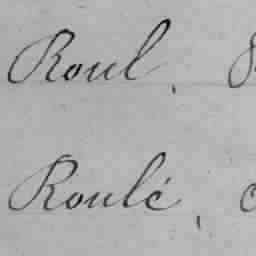 Roul,
Roulé,